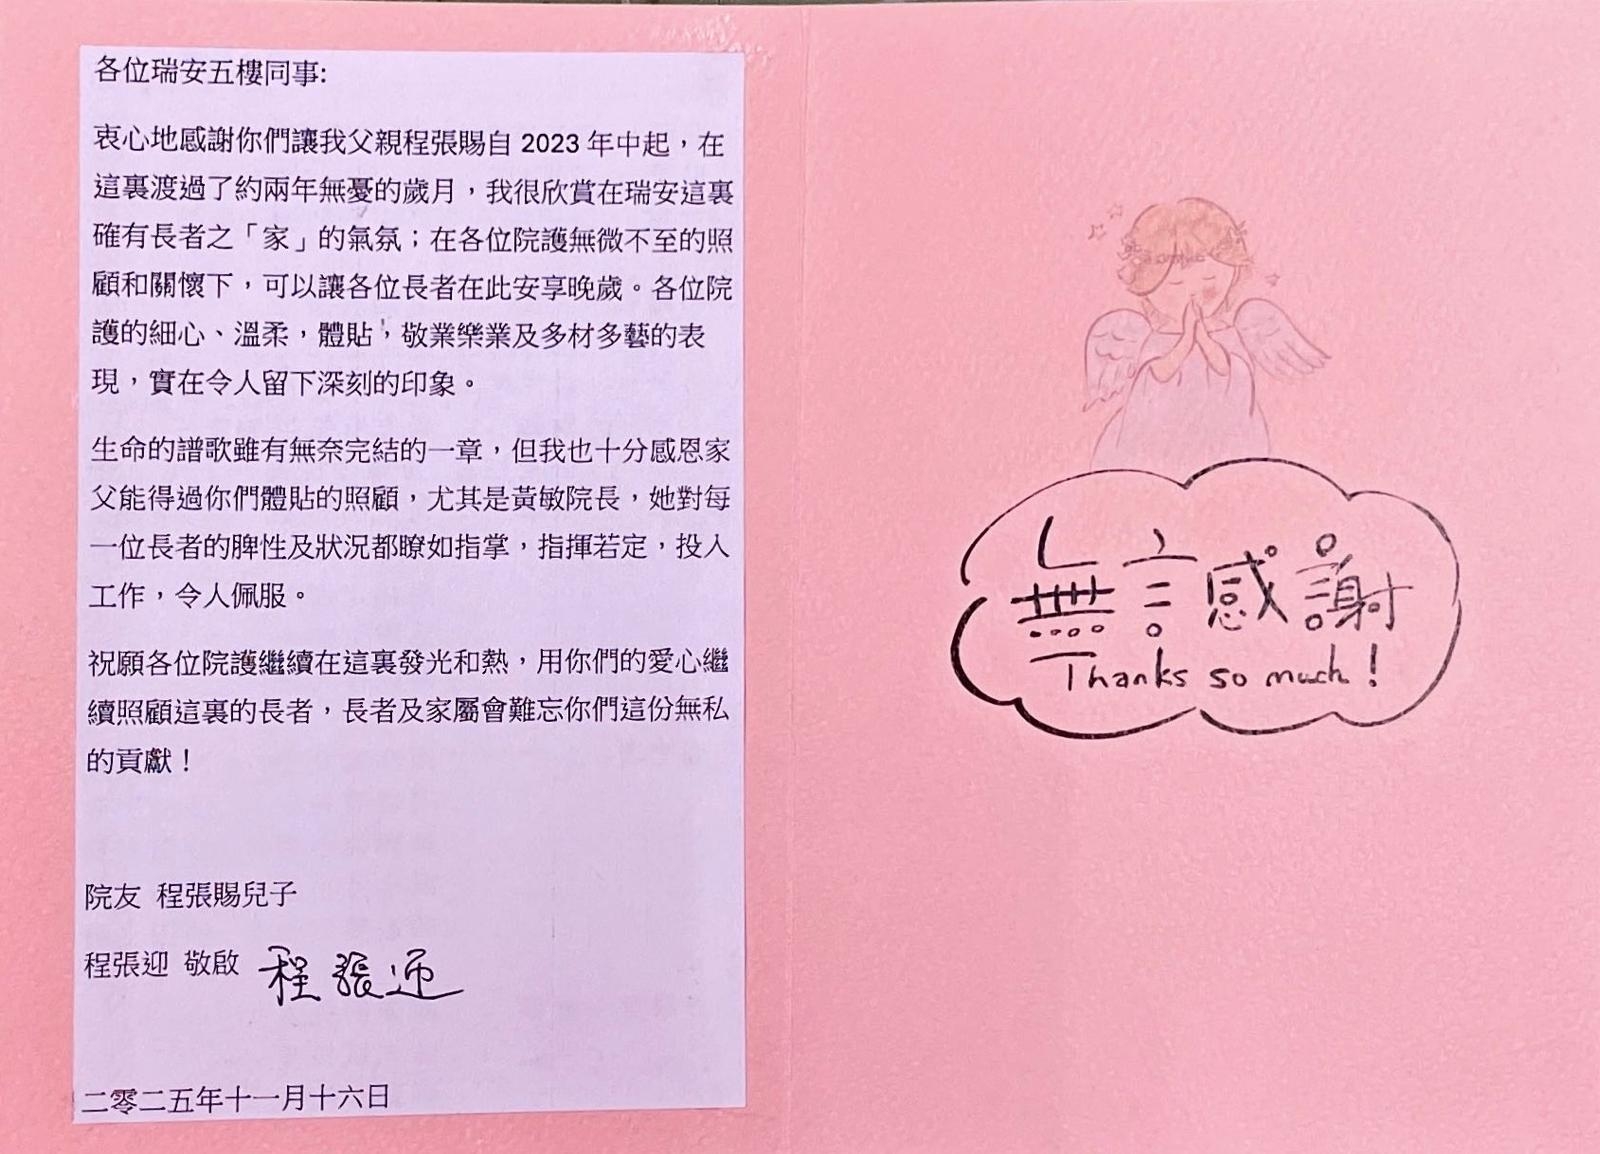 各位瑞安五樓同事:
衷心地感謝你們讓我父親程張賜自 2023 年中起，在
這裏渡過了約兩年無憂的歲月，我很欣賞在瑞安這裏
確有長者之「家」的氣氛；在各位院護無微不至的照
顧和關懷下，可以讓各位長者在此安享晚歲。各位院
護的細心、溫柔，體貼，敬業樂業及多材多藝的表
現，實在令人留下深刻的印象。
生命的譜歌雖有無奈完結的一章，但我也十分感恩家
父能得過你們體貼的照顧，尤其是黃敏院長，她對每
一位長者的脾性及狀況都瞭如指掌，指揮若定，投入
工作，令人佩服。
祝願各位院護繼續在這裏發光和熱，用你們的愛心繼
續照顧這裏的長者，長者及家屬會難忘你們這份無私
的貢獻！
院友 程張賜兒子
程張迎 敬啟 程張迎
二零二五年十一月十六日
無言感謝
Thanks so much!